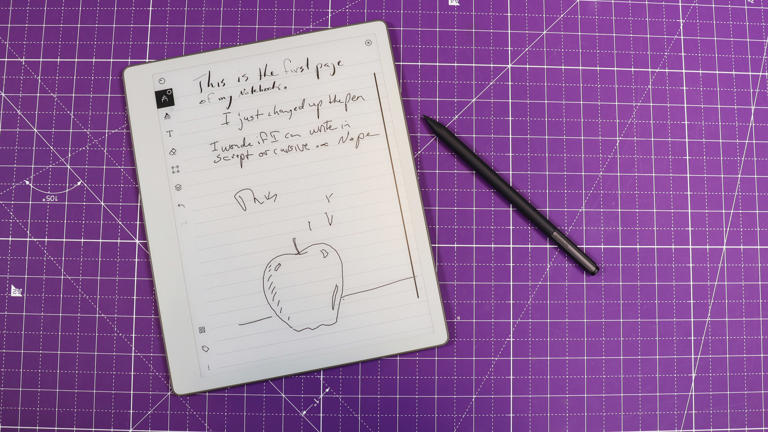 This is the first page
of my Notebook.
I just changed up the pen
I wonder if I can write in
script or cursive or Nope
T
105°